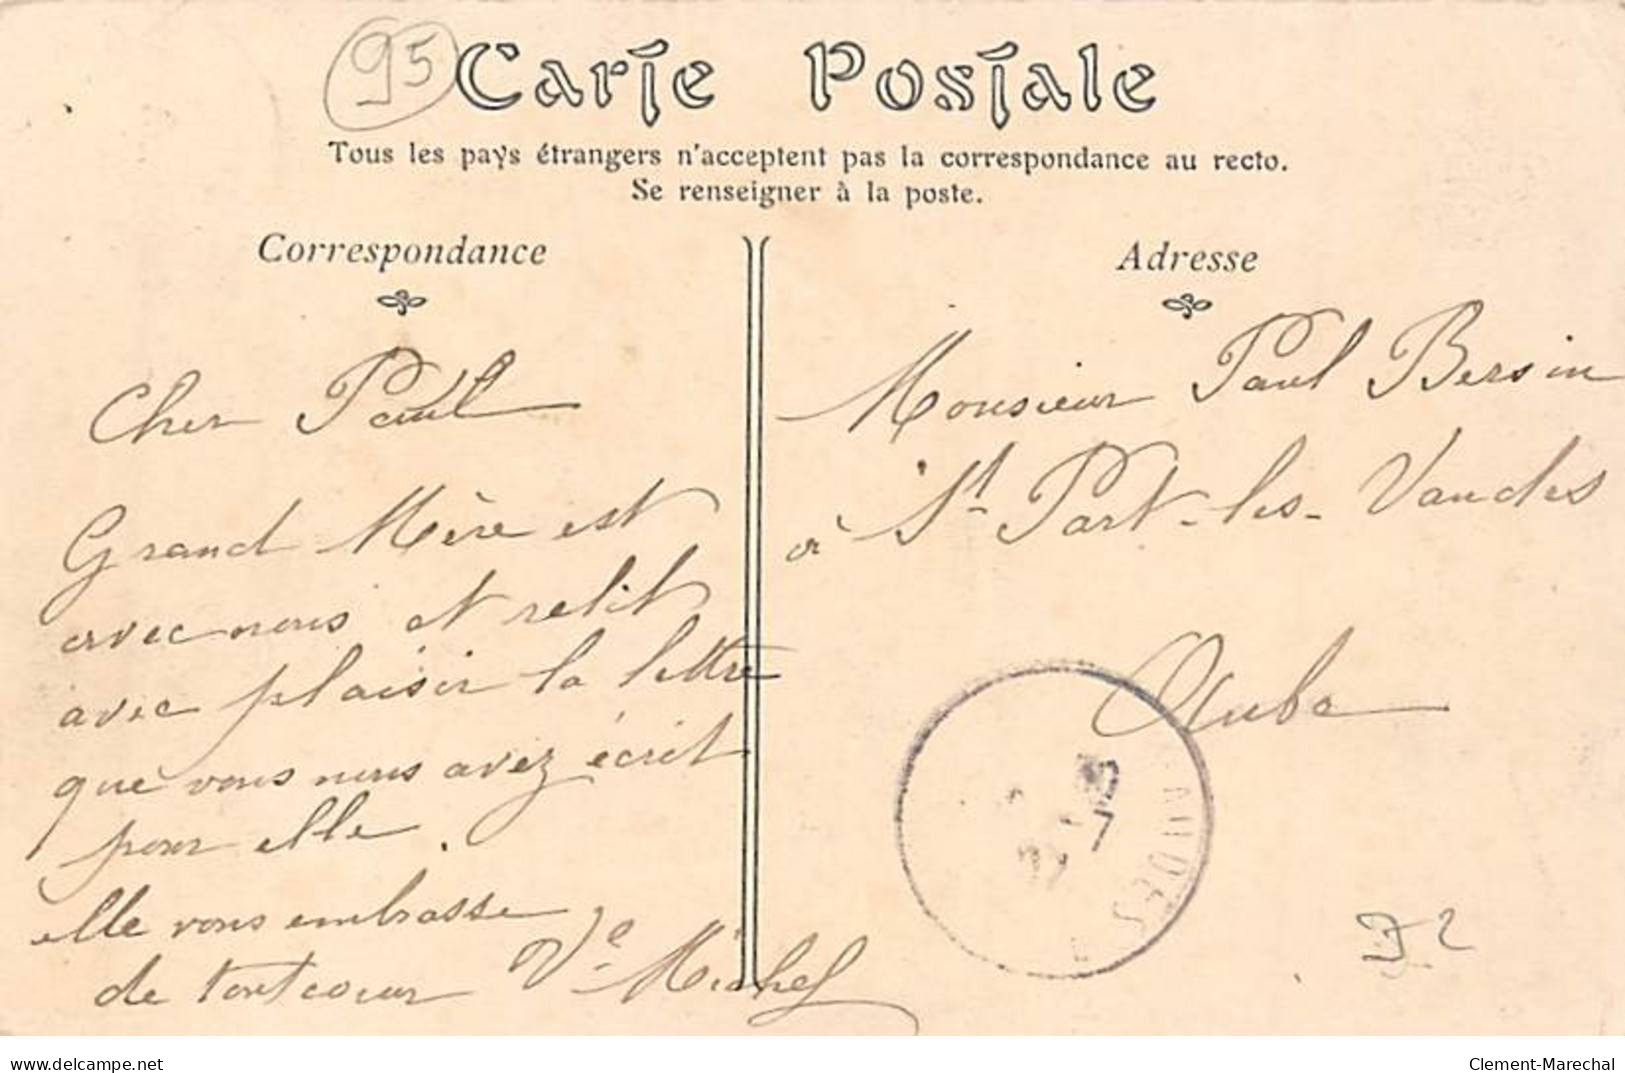 95
Carte Postale
Tous les pays étrangers n'acceptent pas la correspondance au recto.
Se renseigner à la poste.
Correspondance
Cher Paul
Grand Mère est
avec nous et relit
avec plaisir la lettre
que vous nous avez écrit
pour elle.
elle vous embrasse
de tout coeur Ve Michel
Adresse
Monsieur Paul Bersin
à St Part-les-Vaudes
Aube
AUDES
D2
www.delcampe.net
Clement-Marechal